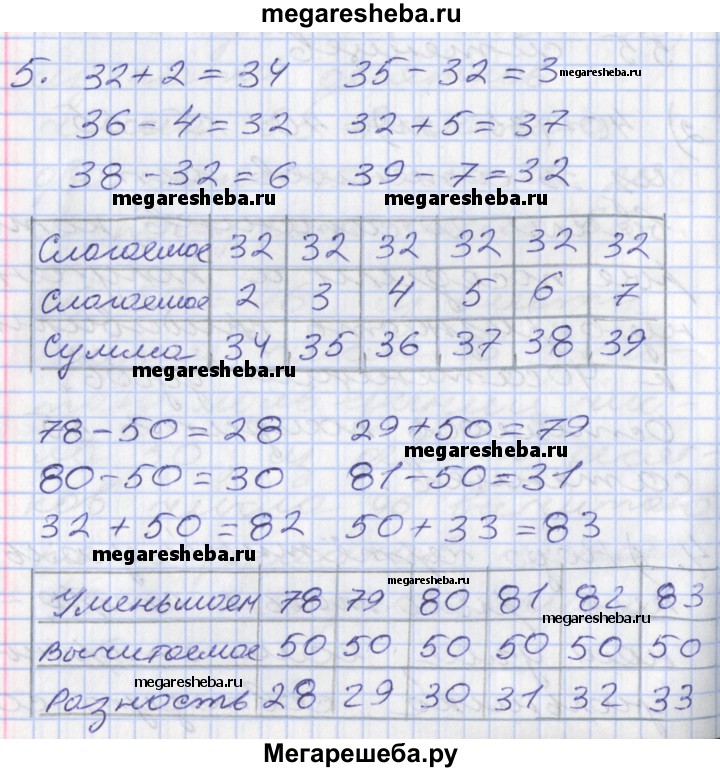 megaresheba.ru
5. 32+2=34 35-32=3 megaresheba.ru
36-4=32 32+5=37
38-32=6 39-7=32
megaresheba.ru megaresheba.ru
Слагаемое 32 32 32 32 32 32
Слагаемое 2 3 4 5 6 7
Сумма 34 35 36 37 38 39
megaresheba.ru
78-50=28 29+50=79
megaresheba.ru
80-50=30 81-50=31
32+50=82 50+33=83
megaresheba.ru
megaresheba.ru
Уменьшаем 78 79 80 81 82 83
megaresheba.ru
Вычитаемое 50 50 50 50 50 50
megaresheba.ru
Разность 28 29 30 31 32 33
Мегарешеба.ру